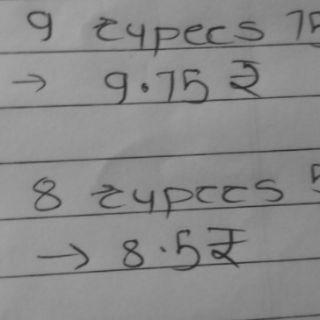 9 rupees 75
→ 9.75 ₹
8 rupees 5
→ 8.5 ₹